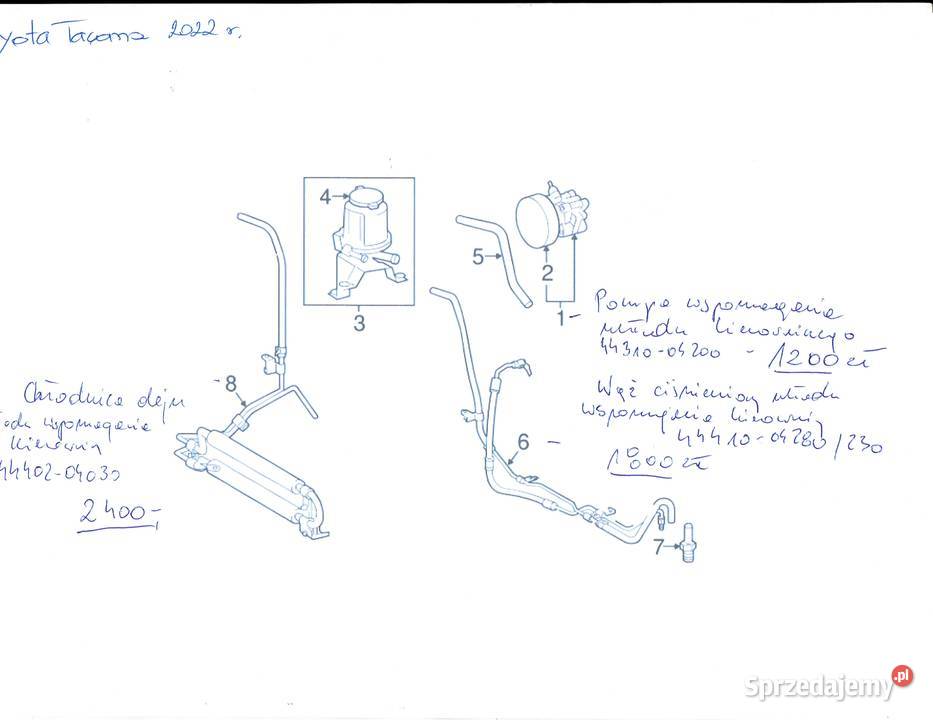 yota Tacoma 2022 r.
4
3
5
2
1 - Pompa wspomagania
układu kierowniczego
44310-04200 - 1200 zł
Wąż ciśnieniowy układu
wspomagania kierownicy
6 - 44410-04280/230
1800 zł
7
Chłodnica oleju - 8
wspomagania
kierowni
44402-04030
2400,-
Sprzedajemy.pl